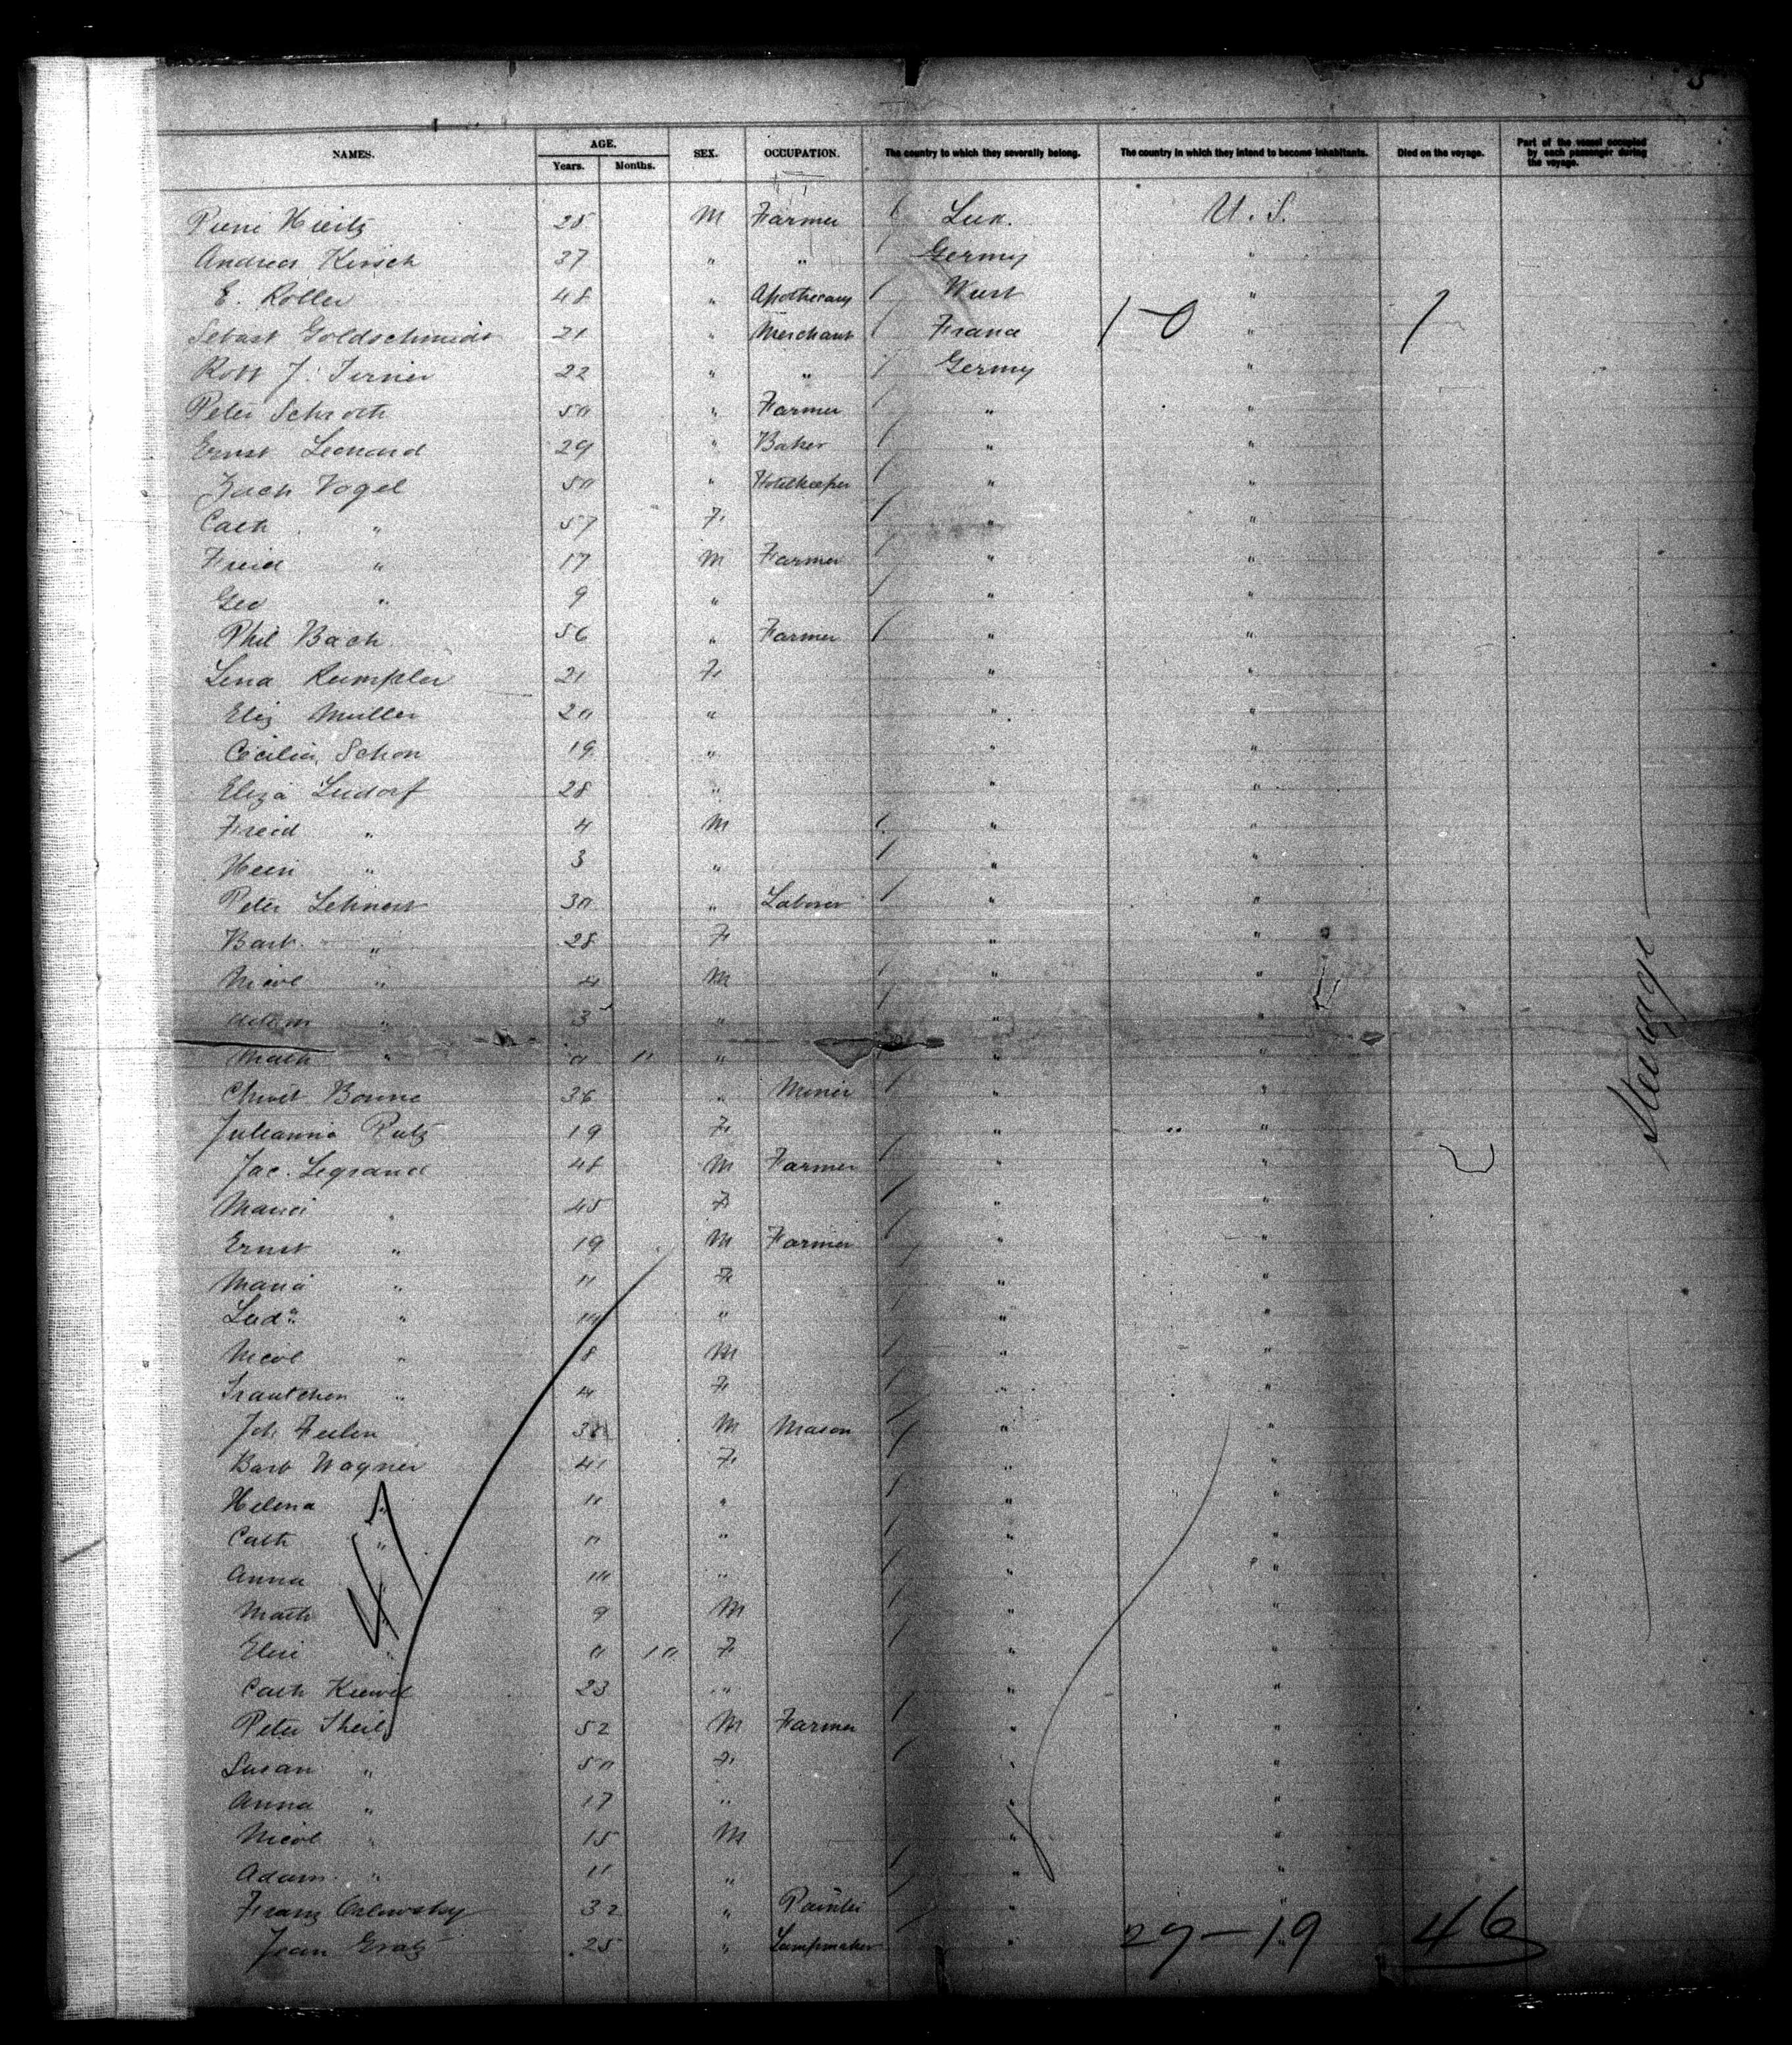 5
NAMES. AGE. Years. Months. SEX. OCCUPATION. The country to which they severally belong. The country in which they intend to become inhabitants. Died on the voyage. Part of the vessel occupied by each passenger during the voyage.
28 M Farmer Lux. U. S.
Andreas Kirsch 37 " " Germy "
E. Roller 48 " Apothecary Wurt "
Sebast Goldschmidt 21 " Merchant France 1-0 " 1
22 " " Germy "
Peter Schroth 50 " Farmer " "
Ernst Leonard 29 " Baker " "
Zach Vogel 50 " Hotelkeeper " "
Cath " 57 F " "
Fried " 17 M Farmer " "
Geo " 9 " " "
Phil Bach 56 " Farmer " "
Lena Rumpler 21 F " "
Eliz Muller 20 " " "
Cecilia Schon 19 " " "
Eliza Ludorf 28 " " "
Fried " 4 M " "
Heri " 3 " " "
Peter Lehnert 30 " Laborer " "
Barb " 28 F " "
Nicol " 4 M " "
Adam " 3 " " "
Math " 0 11 " " "
Christ Bonne 36 " Miner " "
Julianna Rutz 19 F " "
Jac. Legrand 48 M Farmer " "
Maria " 45 F " "
Ernst " 19 M Farmer " "
Maria " 11 F " "
Lud " 10 " " "
Nicol " 8 M " "
Trautchen " 4 F " "
Joh. Feilen M Mason " "
Barb Wagner 41 F " "
Helena " 11 " " "
Cath " 11 " " "
Anna " 10 " " "
Math " 9 M " "
Elisi " 0 10 F " "
Cath 23 " " "
Peter Theil 52 M Farmer " "
Susan " 50 F " "
Anna " 17 " " "
Nicol " 15 M " "
Adam " 11 " " "
Franz 32 " Painter " "
Jean Gratz 25 " Lampmaker " 27-19 " 46
Steerage